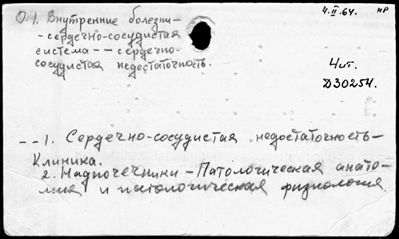 О.1. Внутренние болезни-
- сердечно-сосудистая
система -- сердечно-
сосудистая недостаточность.
4.II.64. нр
4ит.
Д30254.
--1. Сердечно-сосудистая недостаточность-
Клиника.
2. Надпочечники - Патологическая анато-
мия и патологическая физиология